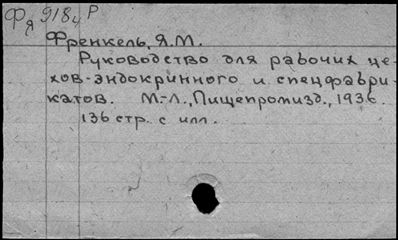 Фя 918ч Р
Френкель, Я.М.
Руководство для рабочих це-
хов-эндокринного и спецфабри-
катов. М.-Л., Пищепромизд., 1936.
136 стр. с илл.